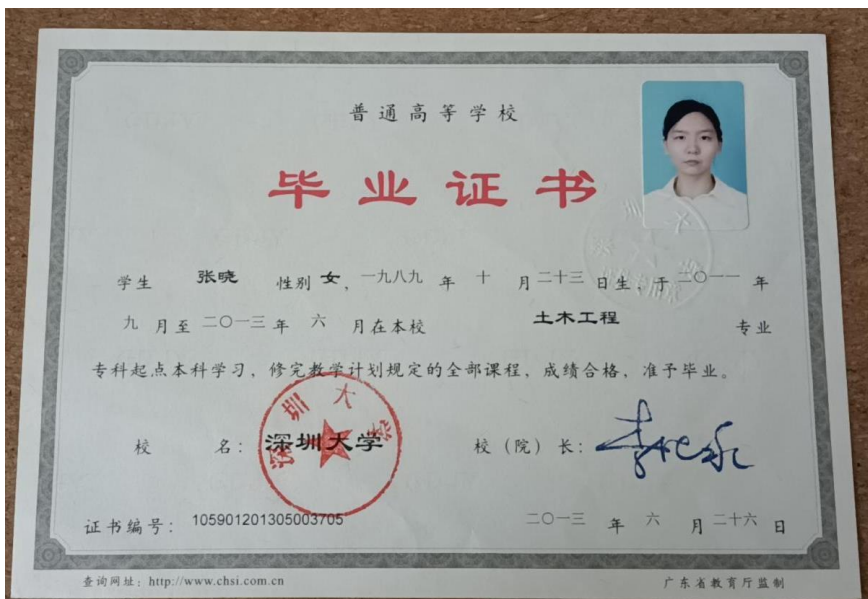 普通高等学校
毕业证书
学生 张晓 性别 女，一九八九 年 十 月 二十三 日生，于 二〇一一 年
九 月至 二〇一三 年 六 月在本校 土木工程 专业
专科起点本科学习，修完教学计划规定的全部课程，成绩合格，准予毕业。
校 名：深圳大学 校（院）长：
深圳大学
证书编号：105901201305003705 二〇一三 年 六 月 二十六 日
查询网址：http://www.chsi.com.cn 广东省教育厅监制